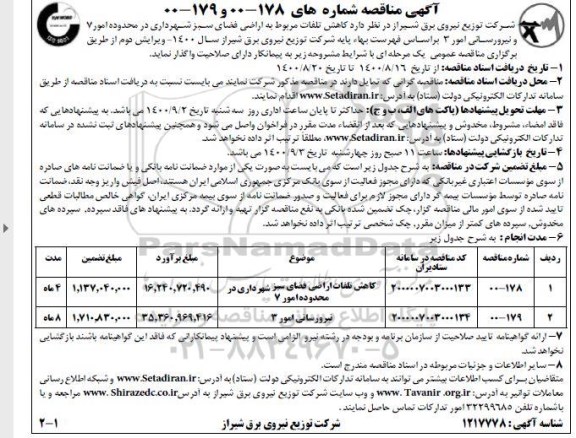 آگهی مناقصه شماره های ۱۷۸-۰۰ و ۱۷۹-۰۰
شرکت توزیع نیروی برق شیراز در نظر دارد کاهش تلفات مربوط به اراضی فضای سبز شهرداری در محدوده امور ۷
و نیرورسانی امور ۳ براساس فهرست بهاء پایه شرکت توزیع نیروی برق شیراز سال ۱۴۰۰- ویرایش دوم از طریق
برگزاری مناقصه عمومی یک مرحله ای با شرایط مشروحه زیر به پیمانکار دارای صلاحیت واگذار نماید.
۱- تاریخ دریافت اسناد مناقصه: از تاریخ ۱۴۰۰/۸/۱۶ تا تاریخ ۱۴۰۰/۸/۲۰
۲- محل دریافت اسناد مناقصه: مناقصه گرانی که تمایل دارند در مناقصه مذکور شرکت نمایند می بایست نسبت به دریافت اسناد مناقصه از طریق
سامانه تدارکات الکترونیکی دولت (ستاد) به آدرس: www.Setadiran.ir اقدام نمایند.
۳- مهلت تحویل پیشنهادها (پاکت های الف، ب و ج): حداکثر تا پایان ساعت اداری روز سه شنبه تاریخ ۱۴۰۰/۹/۲ می باشد. به پیشنهادهایی که
فاقد امضاء، مشروط، مخدوش و پیشنهادهایی که بعد از انقضاء مدت مقرر در فراخوان واصل می شود و همچنین پیشنهادهای ثبت نشده در سامانه
تدارکات الکترونیکی دولت (ستاد) به آدرس: www.Setadiran.ir مطلقا ترتیب اثر داده نخواهد شد.
۴- تاریخ بازگشایی پیشنهادها: ساعت ۱۱ صبح روز چهارشنبه تاریخ ۱۴۰۰/۹/۳ می باشد.
۵- مبلغ تضمین شرکت در مناقصه: به شرح جدول زیر است که می بایست به صورت یکی از موارد ضمانت نامه بانکی و یا ضمانت نامه های صادره
از سوی مؤسسات اعتباری غیربانکی که دارای مجوز فعالیت از سوی بانک مرکزی جمهوری اسلامی ایران هستند، اصل فیش واریز وجه نقد، ضمانت
نامه صادره توسط مؤسسات بیمه گر دارای مجوز لازم برای فعالیت و صدور ضمانت نامه از سوی بیمه مرکزی ایران، گواهی خالص مطالبات قطعی
تایید شده از سوی امور مالی مناقصه گزار، چک تضمین شده بانکی به نفع مناقصه گزار تهیه و ارائه گردد. به پیشنهاد های فاقد سپرده، سپرده های
مخدوش، سپرده های کمتر از میزان مقرر، چک شخصی ترتیب اثر داده نخواهد شد.
۶- مدت انجام: به شرح جدول زیر
ردیف شماره مناقصه کد مناقصه در سامانه ستادیران موضوع مبلغ برآورد مبلغ تضمین مدت
۱ ۱۷۸-۰۰ ۲۰۰۰۰۰۷۰۰۳۰۰۰۱۳۳ کاهش تلفات اراضی فضای سبز شهرداری در محدوده امور ۷ ۱۶,۲۴۰,۷۲۰,۴۹۰ ۱,۱۳۷,۰۴۰,۰۰۰ ۴ ماه
۲ ۱۷۹-۰۰ ۲۰۰۰۰۰۷۰۰۳۰۰۰۱۳۴ نیرورسانی امور ۳ ۳۵,۳۶۰,۱۶۹,۴۱۶ ۱,۷۱۰,۸۳۰,۰۰۰ ۸ ماه
۷- ارائه گواهینامه تایید صلاحیت از سازمان برنامه و بودجه در رشته نیرو الزامی است و پیشنهاد پیمانکارانی که فاقد این گواهینامه باشند بازگشایی
نخواهد شد.
۸- سایر اطلاعات و جزئیات مربوطه در اسناد مناقصه مندرج است.
متقاضیان برای کسب اطلاعات بیشتر می توانند به سامانه تدارکات الکترونیکی دولت (ستاد) به آدرس: www.Setadiran.ir و شبکه اطلاع رسانی
معاملات توانیر به آدرس: www. Tavanir .org.ir و وب سایت شرکت توزیع برق شیراز به آدرس www. Shirazedc.co.ir مراجعه و یا
با شماره تلفن ۳۲۲۹۹۶۸۵ امور تدارکات تماس حاصل نمایند.
شناسه آگهی: ۱۲۱۷۷۷۸ شرکت توزیع نیروی برق شیراز ۲-۱
ParsNamadData
۰۲۱-۸۸۳۴۹۶۷۰-۵